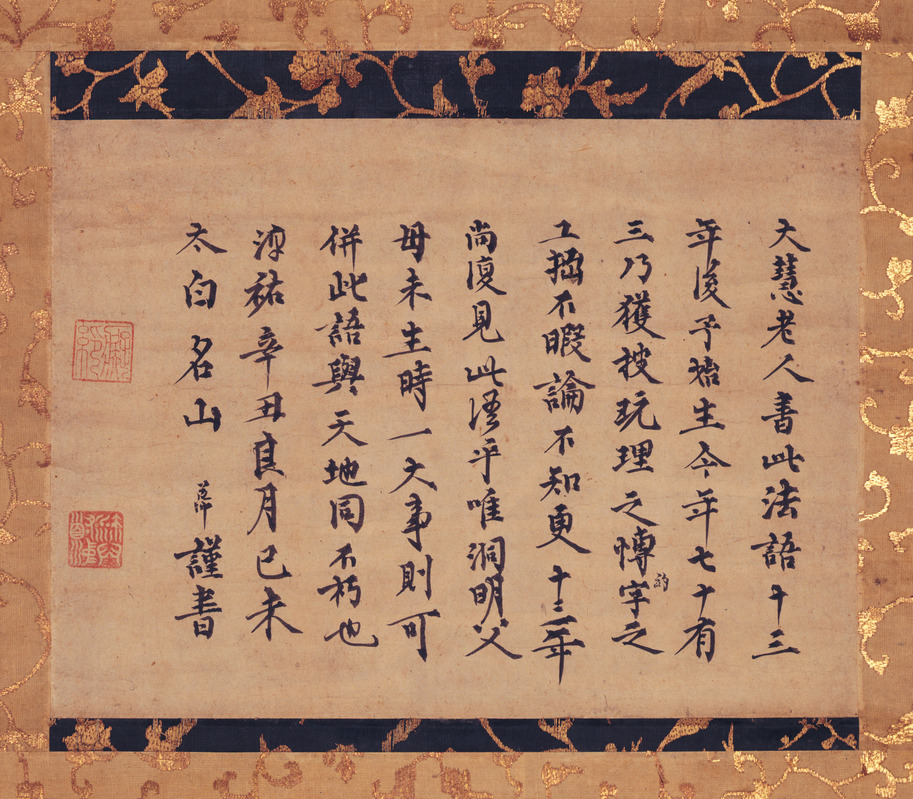 大慧老人書此法語十三
年後予始生今年七十有
三乃獲披玩理之慱字之
工拙不暇論不知更十三年
尚復見此語乎唯洞明父
母未生時一大事則可
併此語與天地同不朽也
淳祐辛丑良月已未
太白名山 謹書